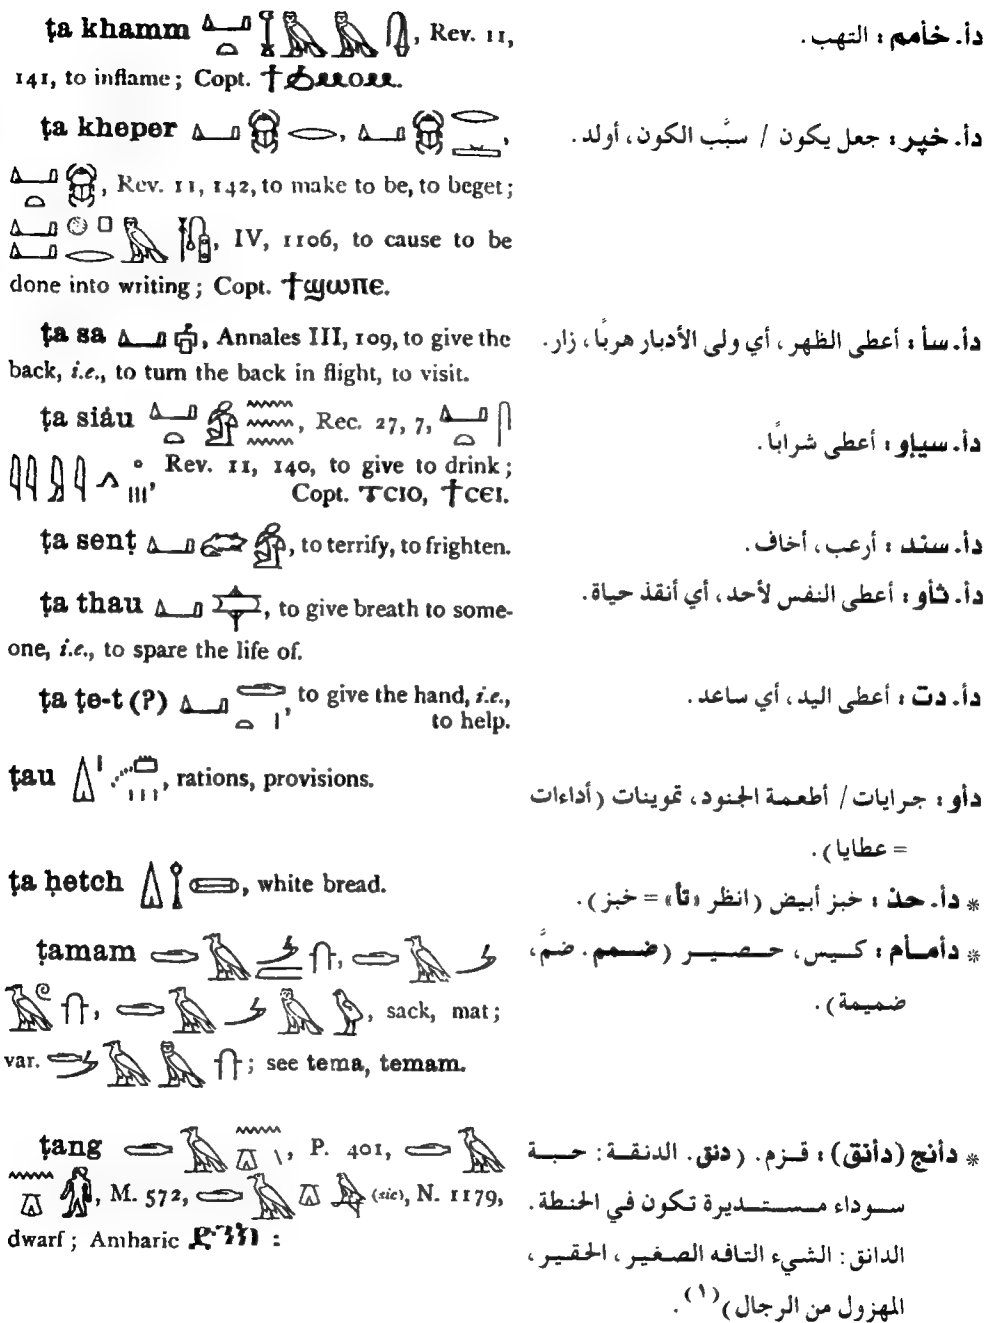 ṭa khamm , Rev. 11,
141, to inflame; Copt. ϯϭⲙⲟⲙ.
ṭa kheper , ,
, Rev. 11, 142, to make to be, to beget;
, IV, 1106, to cause to be
done into writing; Copt. ϯϣⲱⲡⲉ.
ṭa sa , Annales III, 109, to give the
back, i.e., to turn the back in flight, to visit.
ṭa siȧu , Rec. 27, 7,
, Rev. 11, 140, to give to drink;
Copt. ⲧⲥⲓⲟ, ϯⲥⲉⲓ.
ṭa senṭ , to terrify, to frighten.
ṭa thau , to give breath to some-
one, i.e., to spare the life of.
ṭa ṭe-t (?) , to give the hand, i.e.,
to help.
ṭau , rations, provisions.
ṭa ḥetch , white bread.
ṭamam , 
, , sack, mat;
var. ; see tema, temam.
ṭang , P. 401,
, M. 572, (sic), N. 1179,
dwarf; Amharic :
دأ. خأمم : التهب.
دأ. خپر : جعل يكون / سبَّب الكون، أولد.
دأ. سأ : أعطى الظهر، أي ولى الأدبار هربًا، زار.
دأ. سيإو : أعطى شرابًا.
دأ. سند : أرعب، أخاف.
دأ. ثأو : أعطى النفس لأحد، أي أنقذ حياة.
دأ. دت : أعطى اليد، أي ساعد.
دأو : جرايات / أطعمة الجنود، تموينات (أداءات
= عطايا).
* دأ. حذ : خبز أبيض (انظر «تأ» = خبز).
* دأمأم : كيس، حصير (ضمم. ضمَّ،
ضميمة).
* دأنج (دأنق) : قزم. (دنق. الدنقة: حبة
سوداء مستديرة تكون في الحنطة.
الدانق: الشيء التافه الصغير، الحقير،
المهزول من الرجال)(١).